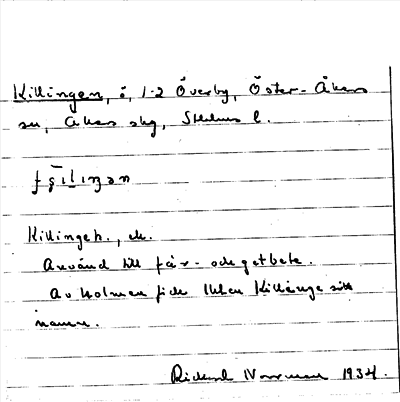 Killingen, ö, 1-2 Överby, Öster-Åkers
sn, Åkers skg, Sthlms l.
Killingeh., ek.
Använd till får- och getbete.
Av holmen fick Killinge sitt
namn.
Rickard 1934